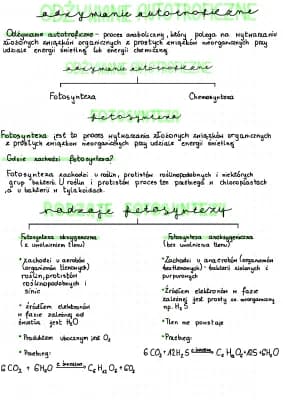 odżywianie autotroficzne
Odżywianie autotroficzne - proces anaboliczny, który polega na wytwarzaniu
złożonych związków organicznych z prostych związków nieorganicznych przy
udziale energii świetlnej lub energii chemicznej
odżywianie autotroficzne
Fotosynteza
Chemosynteza
fotosynteza
Fotosynteza jest to proces wytwarzania złożonych związków organicznych
z prostych związków nieorganicznych przy udziale energii świetlnej
Gdzie zachodzi fotosynteza?
Fotosynteza zachodzi u roślin, protistów roślinopodobnych i niektórych
grup bakterii. U roślin i protistów proces ten przebiega w chloroplastach
, a u bakterii w tylakoidach.
rodzaje fotosyntezy
Fotosynteza oksygeniczna
(z uwolnieniem tlenu)
• zachodzi u aerobów
(organizmów tlenowych)
roślin, protistów
roślinopodobnych i
sinic
• źródłem elektronów
w fazie zależnej od
światła jest H2O
• Produktem ubocznym jest O2
• Przebieg:
6CO2 + 6H2O → C6H12O6 + 6O2
Fotosynteza anoksygeniczna
(bez uwolnienia tlenu)
• Zachodzi u anaerobów (organizmów
beztlenowych) - bakterii zielonych i
purpurowych
• Źródłem elektronów w fazie
zależnej jest prosty zw. nieorganiczny
np. H2S
• Tlen nie powstaje
• Przebieg:
6CO2 + 12H2S → C6H12O6 + 12S + 6H2O